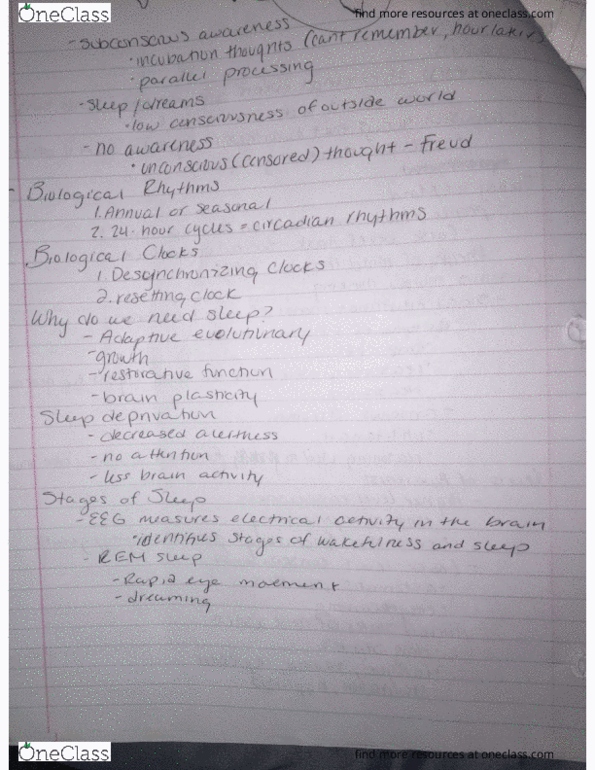 OneClass
find more resources at oneclass.com
- subconscious awareness
• incubation thoughts (cant remember, hour later)
• parallel processing
- sleep/dreams
• low consciousness of outside world
- no awareness
• unconscious (censored) thought - Freud
- Biological Rhythms
1. Annual or seasonal
2. 24-hour cycles = circadian rhythms
Biological Clocks
1. Desynchronizing clocks
2. resetting clock
Why do we need sleep?
- Adaptive evolutinary
- growth
- restorative function
- brain plasticity
Sleep deprivation
- decreased alertness
- no attention
- less brain activity
Stages of Sleep
- EEG measures electrical activity in the brain
• identifies stages of wakefulness and sleep
- REM sleep
- Rapid eye movement
- dreaming
OneClass
find more resources at oneclass.com